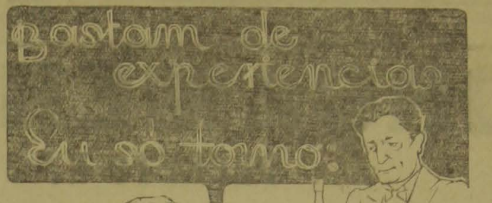 Bastam de
experiencias
Eu só tomo: